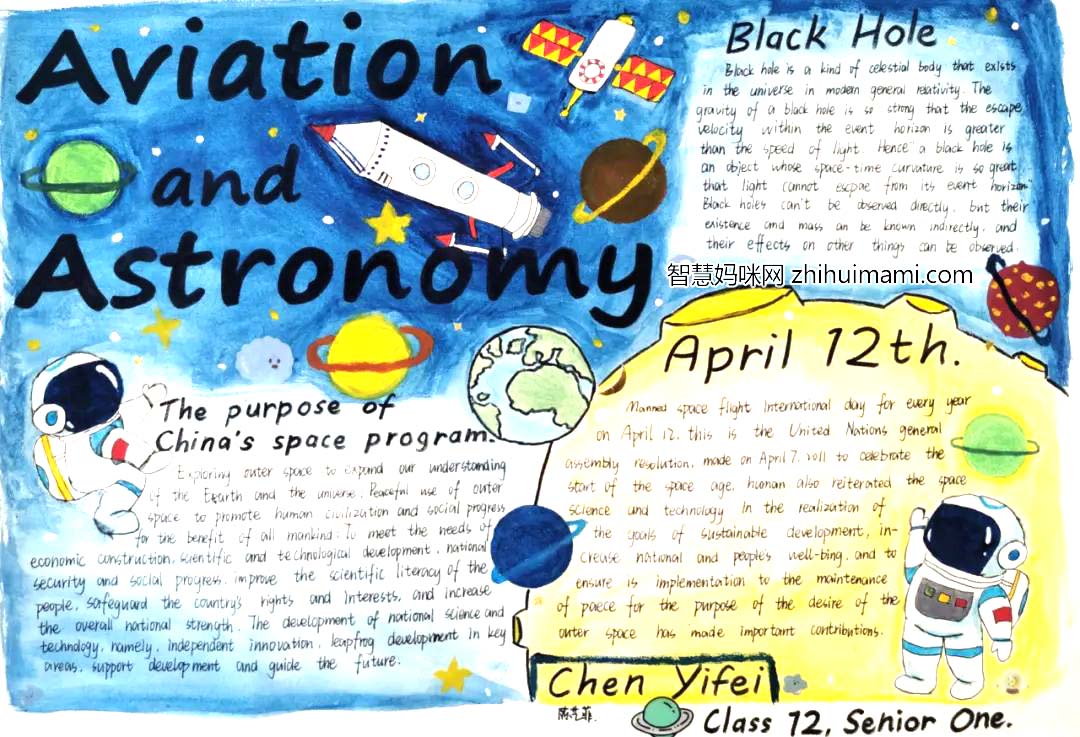 Aviation
and
Astronomy
Black Hole
Black hole is a kind of celestial body that exists
in the universe in modern general relativity. The
gravity of a black hole is so strong that the escape
velocity within the event horizon is greater
than the speed of light. Hence "a black hole is
an object whose space-time curvature is so great
that light cannot escpae from its event horizon"
Black holes can't be observed directly, but their
existence and mass an be known indirectly, and
their effects on other things can be observed.
智慧妈咪网 zhihuimami.com
The purpose of
China's space program.
Exploring outer space to expand our understanding
of the Earth and the universe. Peaceful use of outer
space to promote human civilization and social progress
for the benefit of all mankind; To meet the needs of
economic construction, scientific and technological development, national
security and social progress, improve the scientific literacy of the
people, safeguard the country's rights and interests, and increase
the overall national strength. The development of national science and
technology, namely, independent innovation, leapfrog development in key
areas, support development and guide the future.
April 12th.
Manned space flight International day for every year
on April 12, this is the United Nations general
assembly resolution, made on April 7, 2011 to celebrate the
start of the space age, human also reiterated the space
science and technology In the realization of
the goals of sustainable development, in-
crease national and people's well-bing, and to
ensure is implementation to the maintenance
of paece for the purpose of the desire of the
outer space has made important contributions.
Chen Yifei
陈艺菲.
Class 12, Senior One.